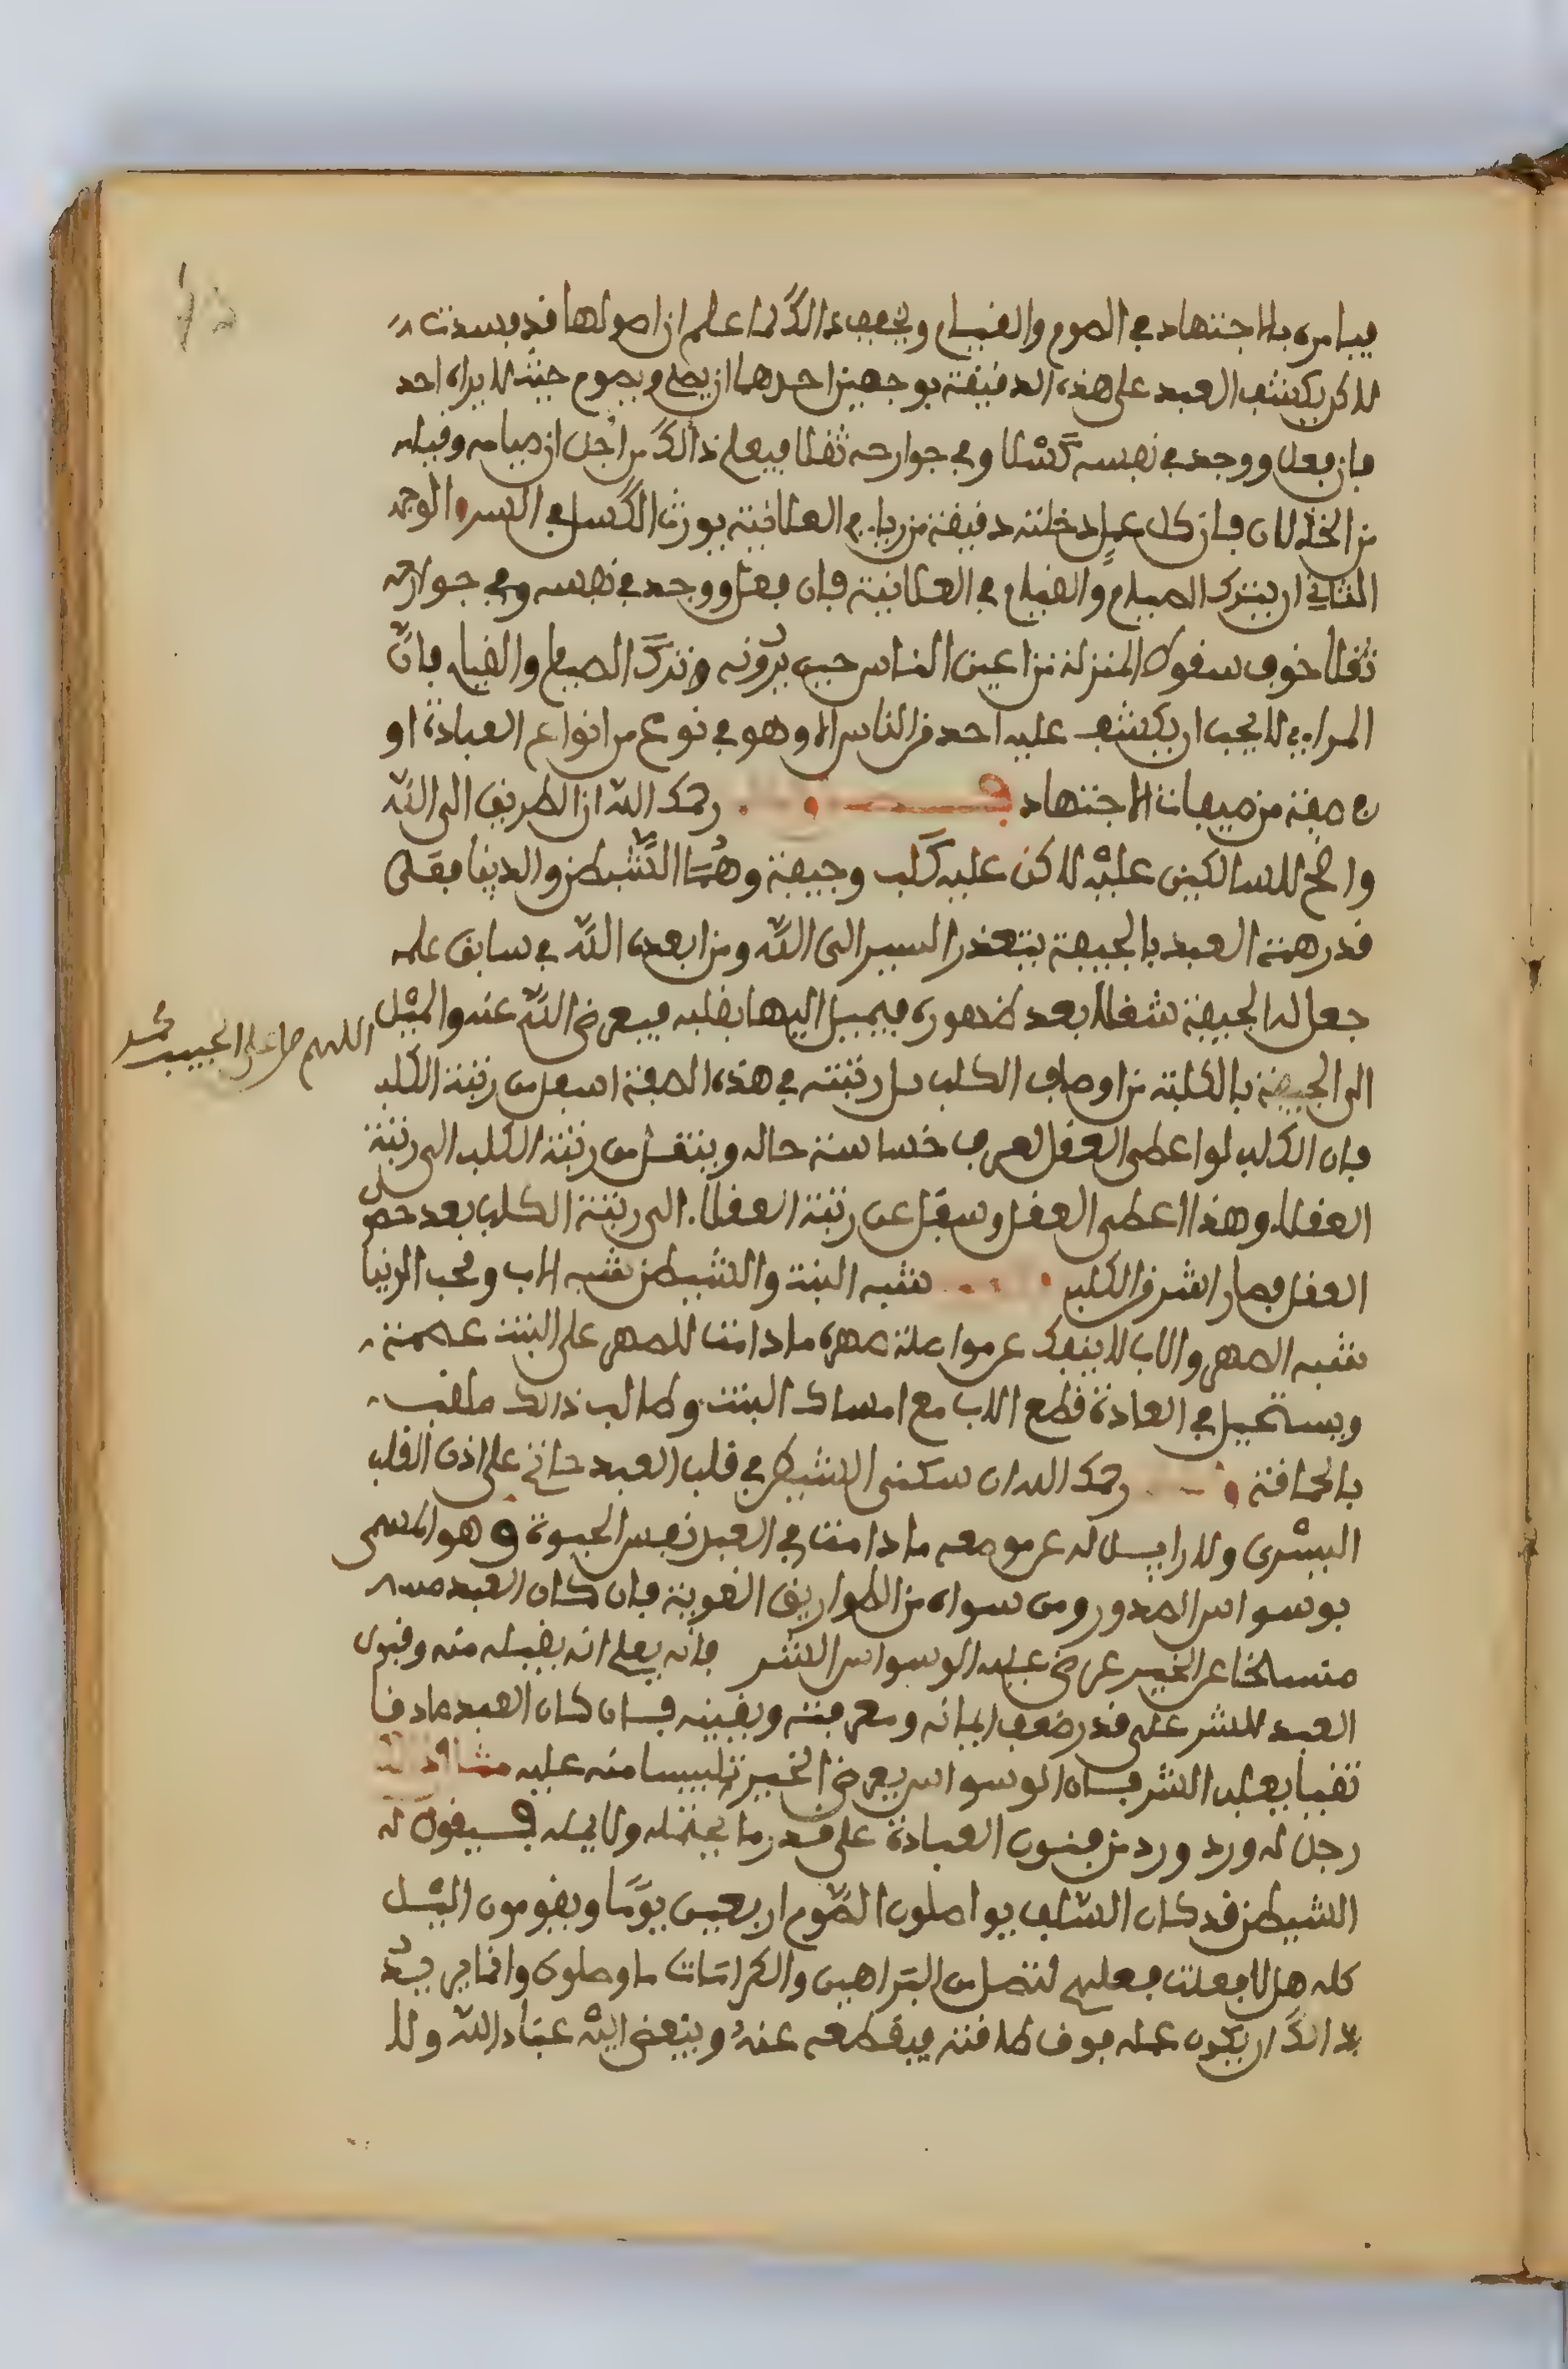 فيامره بالاجتهاد في الصوم والقيام ويخفف ذالك لما علم ان اصولها قد فسدت
لاكن يكشف العبد على هذه الدقيقة بوجهين احدهما ان يصلي ويصوم حيث لا يراه احد
فان فعل ووجد في نفسه كسلا وفي جوارحه ثقلا فيعلم ذالك من اجل ان صيامه وقيامه
من الخذلان فان كل عمل دخلته دقيقة من رياء في العلانية يورث الكسل في السر والوجه
الثاني ان يترك الصيام والقيام في العلانية فان فعل ووجد في نفسه وفي جوارحه
ثقلا خوف سقوط المنزلة من اعين الناس حيث يرونه وترك الصيام والقيام فان
المراءي لا يحب ان يكشف عليه احد من الناس الا وهو في نوع من انواع العبادة او
في صفة من صفات الاجتهاد رحمك الله ان الطريق الى الله
واضح للسالكين عليه لاكن عليه كلب وجيفة وهما الشيطن والدنيا فعلى
قدر همة العبد بالجيفة يتعذر السير الى الله ومن ابعده الله في سابق علمه
جعل له الجيفة شغلا بعد ظهوره فيميل اليها بقلبه فيعرض الله عنه والميل
الى الجيفة بالكلية من اوصاف الكلب بل رتبته في هذه الصفة اسفل من رتبة الكلب
فان الكلب لو اعطي العقل لعرف خساسة حاله وينتقل من رتبة الكلب الى رتبة
العقلاء وهذا اعطي العقل وسفل عن رتبة العقلاء الى رتبة الكلب بعد حصول
العقل فصار اشر من الكلب شبه البنت والشيطن شبه الاب ومحب الدنيا
شبه الصهر والاب لا ينفك عن مواصلة صهره ما دامت للصهر على البنت عصمة
ويستحيل في العادة قطع الاب مع امساك البنت وطالب ذالك ملقب
بالحماقة رحمك الله ان سكنى الشيطن في قلب العبد على اذن القلب
اليسرى ولا زايل له عن موضعه ما دامت في العبد نفس الحيوة وهو المسمى
بوسواس الصدور ومن سواه من الطواريق الغوية فان كان العبد
منسلخا عن الخير عرض عليه الوسواس الشر فانه يعلم انه يقبله منه وقبول
العبد للشر على قدر ضعف ايمانه ومعرفته ويقينه فان كان العبد صادقا
تقيا يغلب الشر فان الوسواس يعرض الخير تلبيسا منه عليه
رجل له ورد ورد من فنون العبادة على قدر ما يحتمله ولا يمله فيقول له
الشيطن قد كان السلف يواصلون الصوم اربعين يوما ويقومون الليل
كله هل لا فعلت فعلهم لتصل من البراهين والكرامات ما وصلوه وانما يريد
بذالك ان يكون عمله فوق طاقته فيقطعه عنه ويبغض اليه عباد الله ولا
اللهم صل على الحبيب محمد